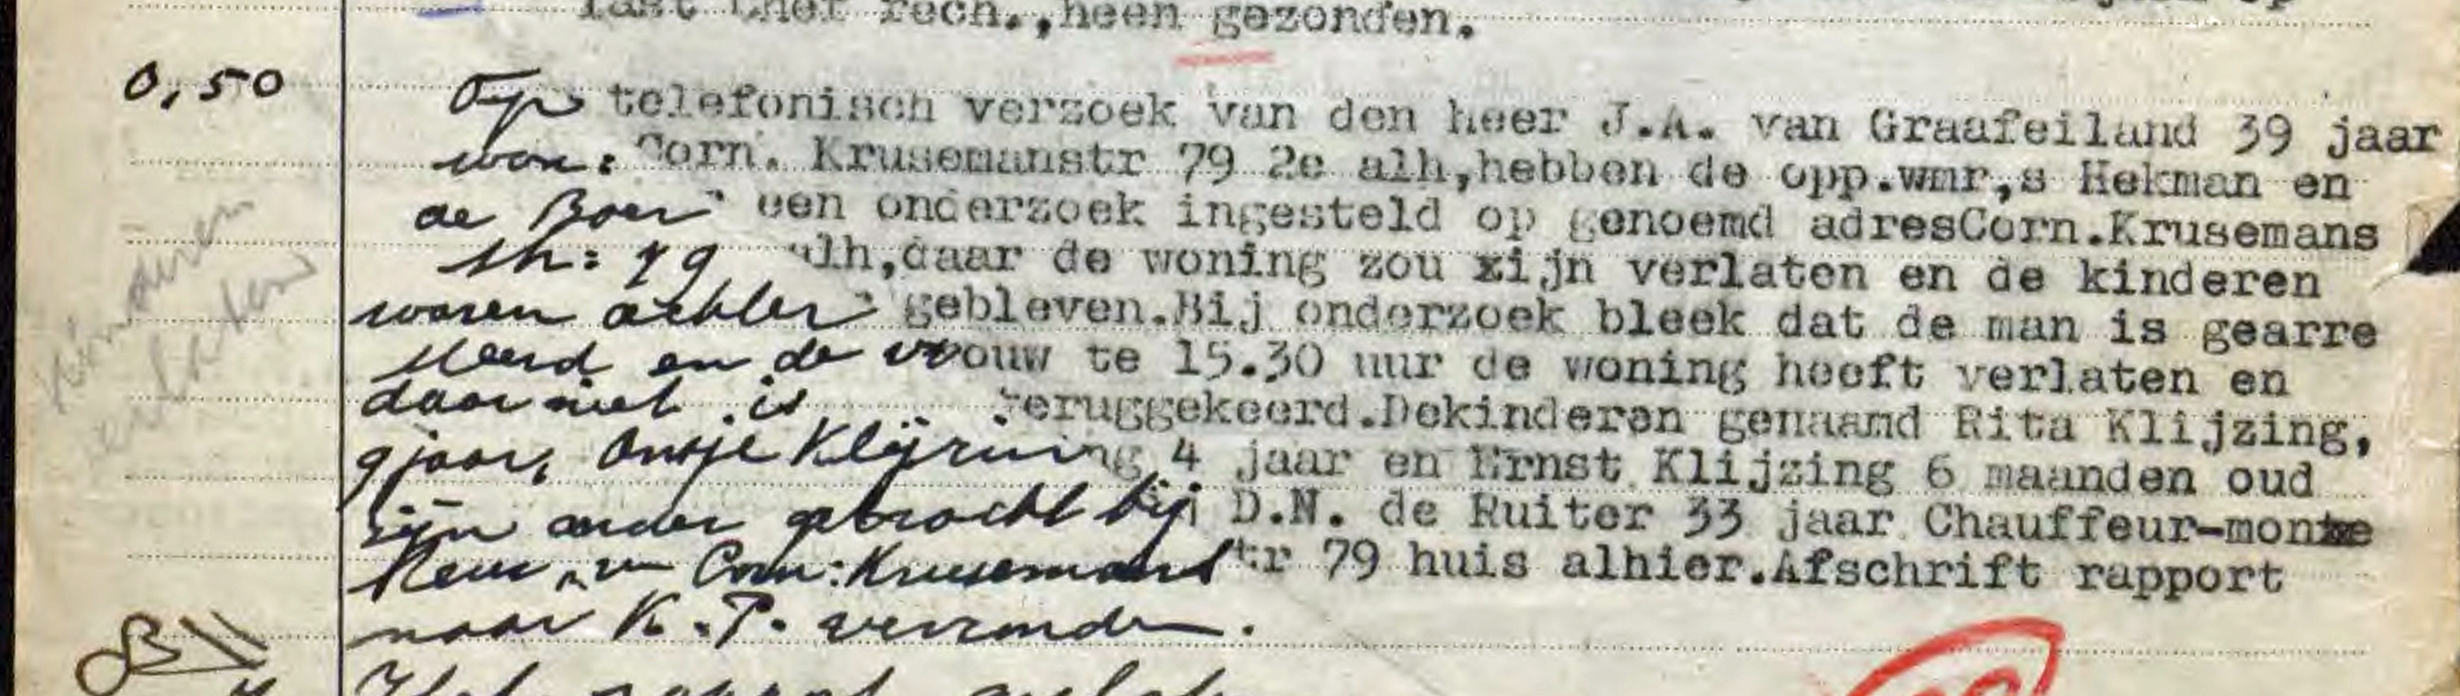 last Chef rech.,heen gezonden.
0,50 Op telefonisch verzoek van den heer J.A. van Graafeiland 39 jaar
won: Corn. Krusemanstr 79 2e alh,hebben de opp.wmr,s Hekman en
de Boer een onderzoek ingesteld op genoemd adresCorn.Krusemans
str: 79 alh,daar de woning zou zijn verlaten en de kinderen
kinderen
verlaten
waren achter gebleven.Bij onderzoek bleek dat de man is gearre
steerd en de vrouw te 15.30 uur de woning heeft verlaten en
daar niet is teruggekeerd.Dekinderen genaamd Rita Klijzing,
9 jaar, Antje Klijzing 4 jaar en Ernst Klijzing 6 maanden oud
zijn onder gebracht bij D.N. de Ruiter 33 jaar Chauffeur-monte
keur, w Corn: Krusemanstr 79 huis alhier.Afschrift rapport
naar K.P. verzonden.
Het rapport